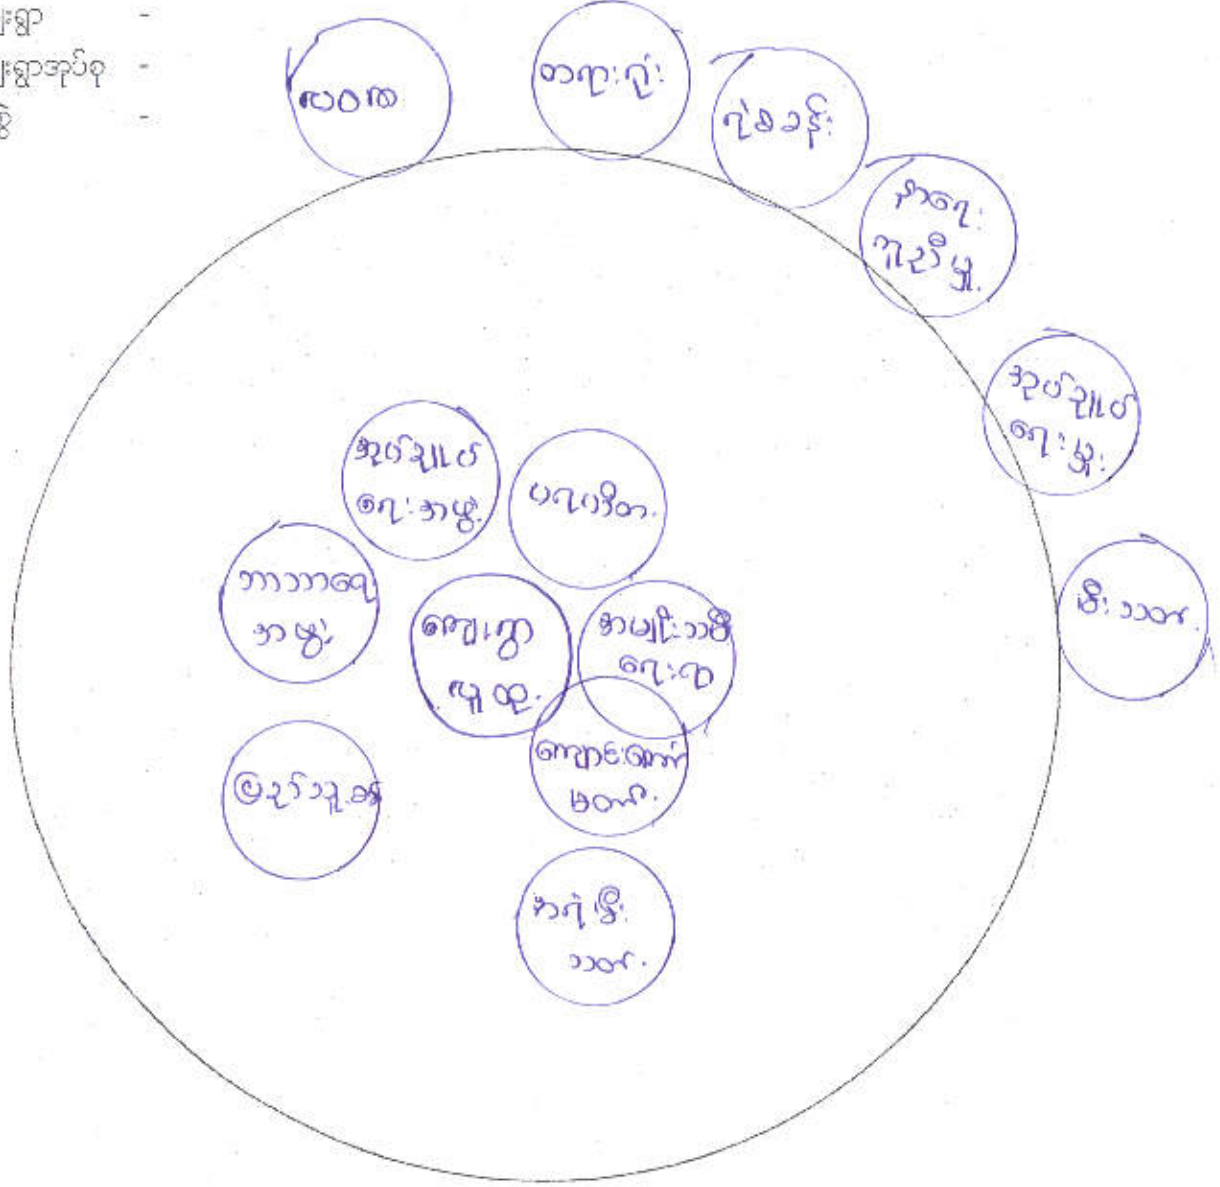 ျေးရွာ -
ျေးရွာအုပ်စု -
-
လဝက
တရားရုံး
ရဲစခန်း
နာရေး
ကူညီမှု
အုပ်ချုပ်
ရေးမှူး
အုပ်ချုပ်
ရေးအဖွဲ့
ပရဟိတ
ဘာသာရေး
အဖွဲ့
ကျေးရွာ
လူထု
အမျိုးသမီး
ရေးရာ
မီးသတ်
ကျောင်းကော်
မတီ
ပြည်သူ့စစ်
အရံမီး
သတ်